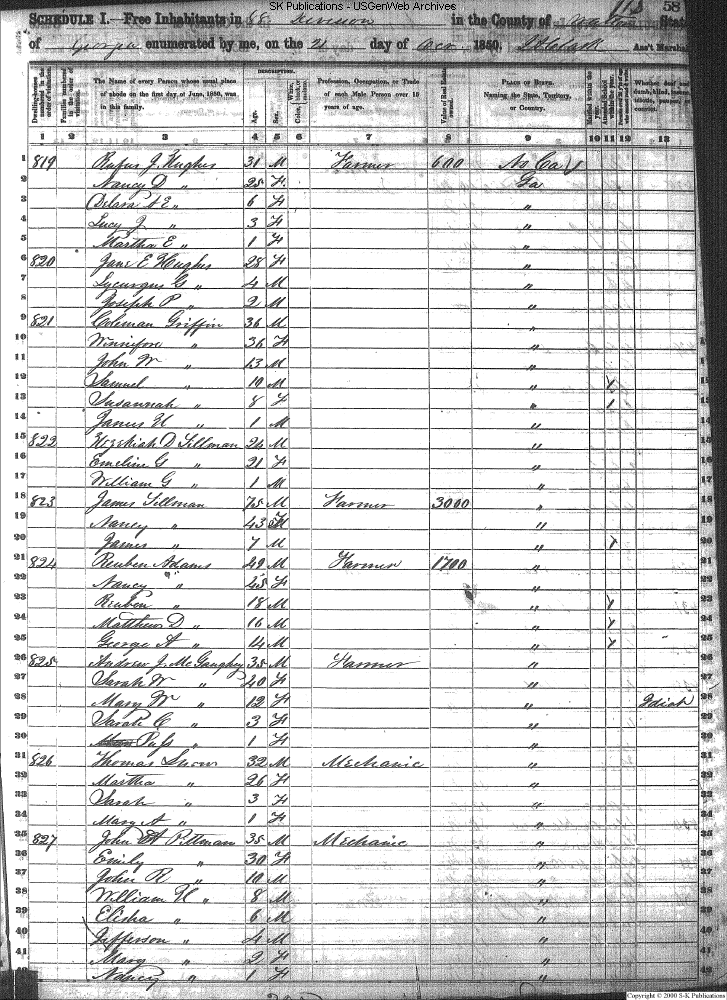 SK Publications - USGenWeb Archives
58
SCHEDULE I.—Free Inhabitants in 68 Division in the County of Walton State
of Georgia enumerated by me, on the 21 day of Dec 1850. Ass't Marshal
Dwelling-houses numbered in the order of visitation.
Families numbered in the order of visitation.
The Name of every Person whose usual place of abode on the first day of June, 1850, was in this family.
DESCRIPTION.
Age.
Sex.
Profession, Occupation, or Trade of each Male Person over 15 years of age.
Value of Real Estate owned.
PLACE OF BIRTH. Naming the State, Territory, or Country.
1 2 3 4 5 6 7 8 9 10 11 12 13
1 819 Rufus J Hughes 31 M Farmer 600 No Ca
2 Nancy D " 25 F Ga
3 A E " 6 F "
4 Lucy J " 3 F "
5 Martha E " 1 F "
6 820 Jane E Hughes 28 F "
7 Lycurgus G " 4 M "
8 Joseph P " 2 M "
9 821 Coleman Griffin 36 M "
10 " 36 F "
11 John W " 13 M "
12 Samuel " 10 M " 1
13 Susannah " 8 F " 1
14 James H " 1 M "
15 822 Hezekiah D Tillman 24 M "
16 Emeline G " 21 F "
17 William G " 1 M "
18 823 James Tillman 75 M Farmer 3000 "
19 Nancy " 43 F "
20 James " 7 M " 1
21 824 Reuben Adams 49 M Farmer 1700 "
22 Nancy " 45 F "
23 Reuben " 18 M " 1
24 Matthew D " 16 M " 1
25 George A " 14 M " 1
26 825 Andrew J McGaughey 35 M Farmer "
27 Sarah W " 40 F "
28 Mary W " 12 F " Idiot
29 Sarah C " 3 F "
30 " 1 F "
31 826 Thomas Snow 32 M Mechanic "
32 Martha " 26 F "
33 Sarah " 3 F "
34 Mary A " 1 F "
35 827 John Pittman 35 M Mechanic "
36 Emily " 30 F "
37 John R " 10 M "
38 William H " 8 M "
39 Elisha " 6 M "
40 Jefferson " 4 M "
41 Mary " 2 F "
42 Nancy " 1 F "
Copyright © 2000 S-K Publications